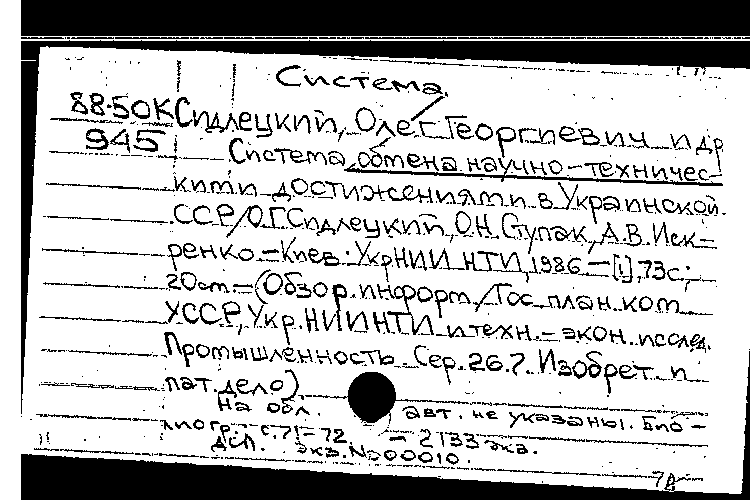 Система
88-50К Сидлецкий, Олег Георгиевич и др
945
Система обмена научно-техничес-
кими достижениями в Украинской
ССР/О.Г.Сидлецкий, О.Н. Ступак, А.В. Иск-
ренко.-Киев: УкрНИИНТИ, 1986.-[1], 73с.;
20см.-(Обзор. информ./Гос. план. ком.
УССР, Укр. НИИНТИ и техн.-экон. исслед.
Промышленность. Сер. 26.7. Изобрет. и
пат. дело).
На обл. авт. не указаны. Биб-
лиогр.: с. 71-72 - 2133 экз.
ДСП. Экз. №00010.